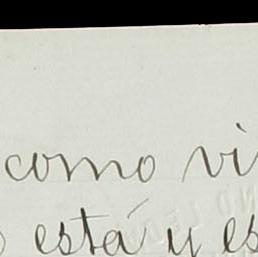 como vi
está y es